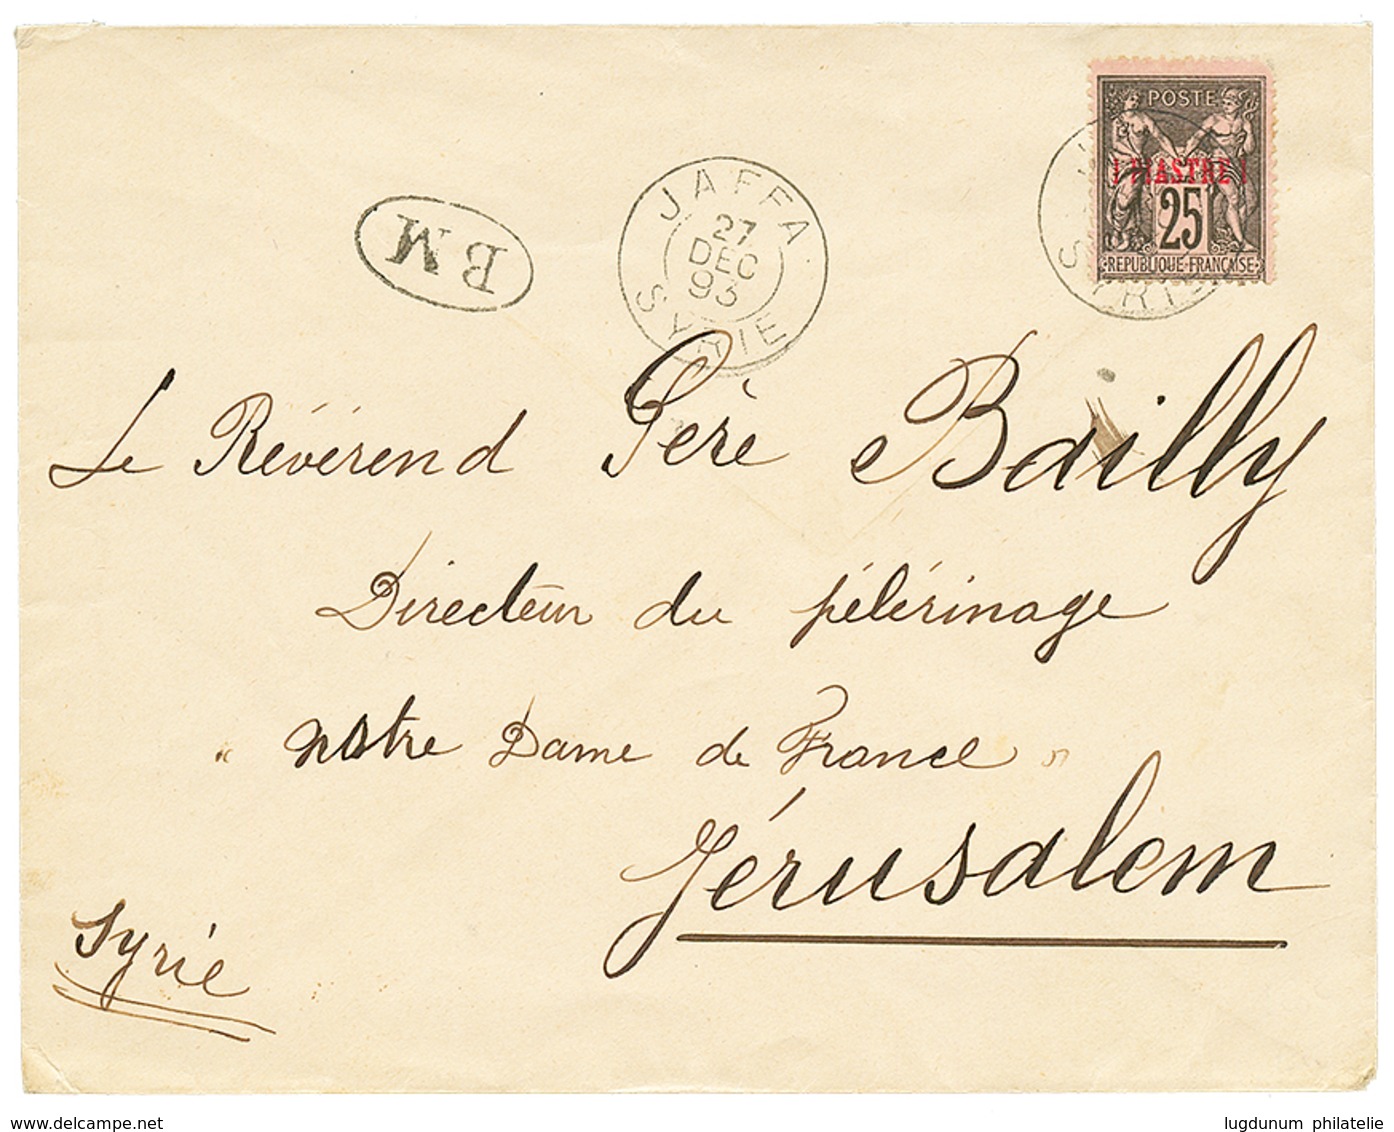 POSTE
1 PIASTRE 1
25
REPUBLIQUE FRANÇAISE
SYRIE
JAFFA
27
DEC
93
SYRIE
BM
Le Révérend Père Bailly
Directeur du pélérinage
“ Notre Dame de France ”
Jérusalem
Syrie
www.delcampe.net
lugdunum philatelie